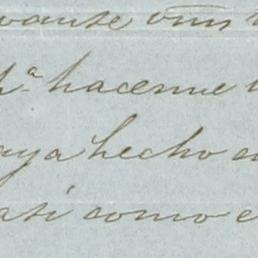 vante vms
pª hacerme
aya hecho
asi como e